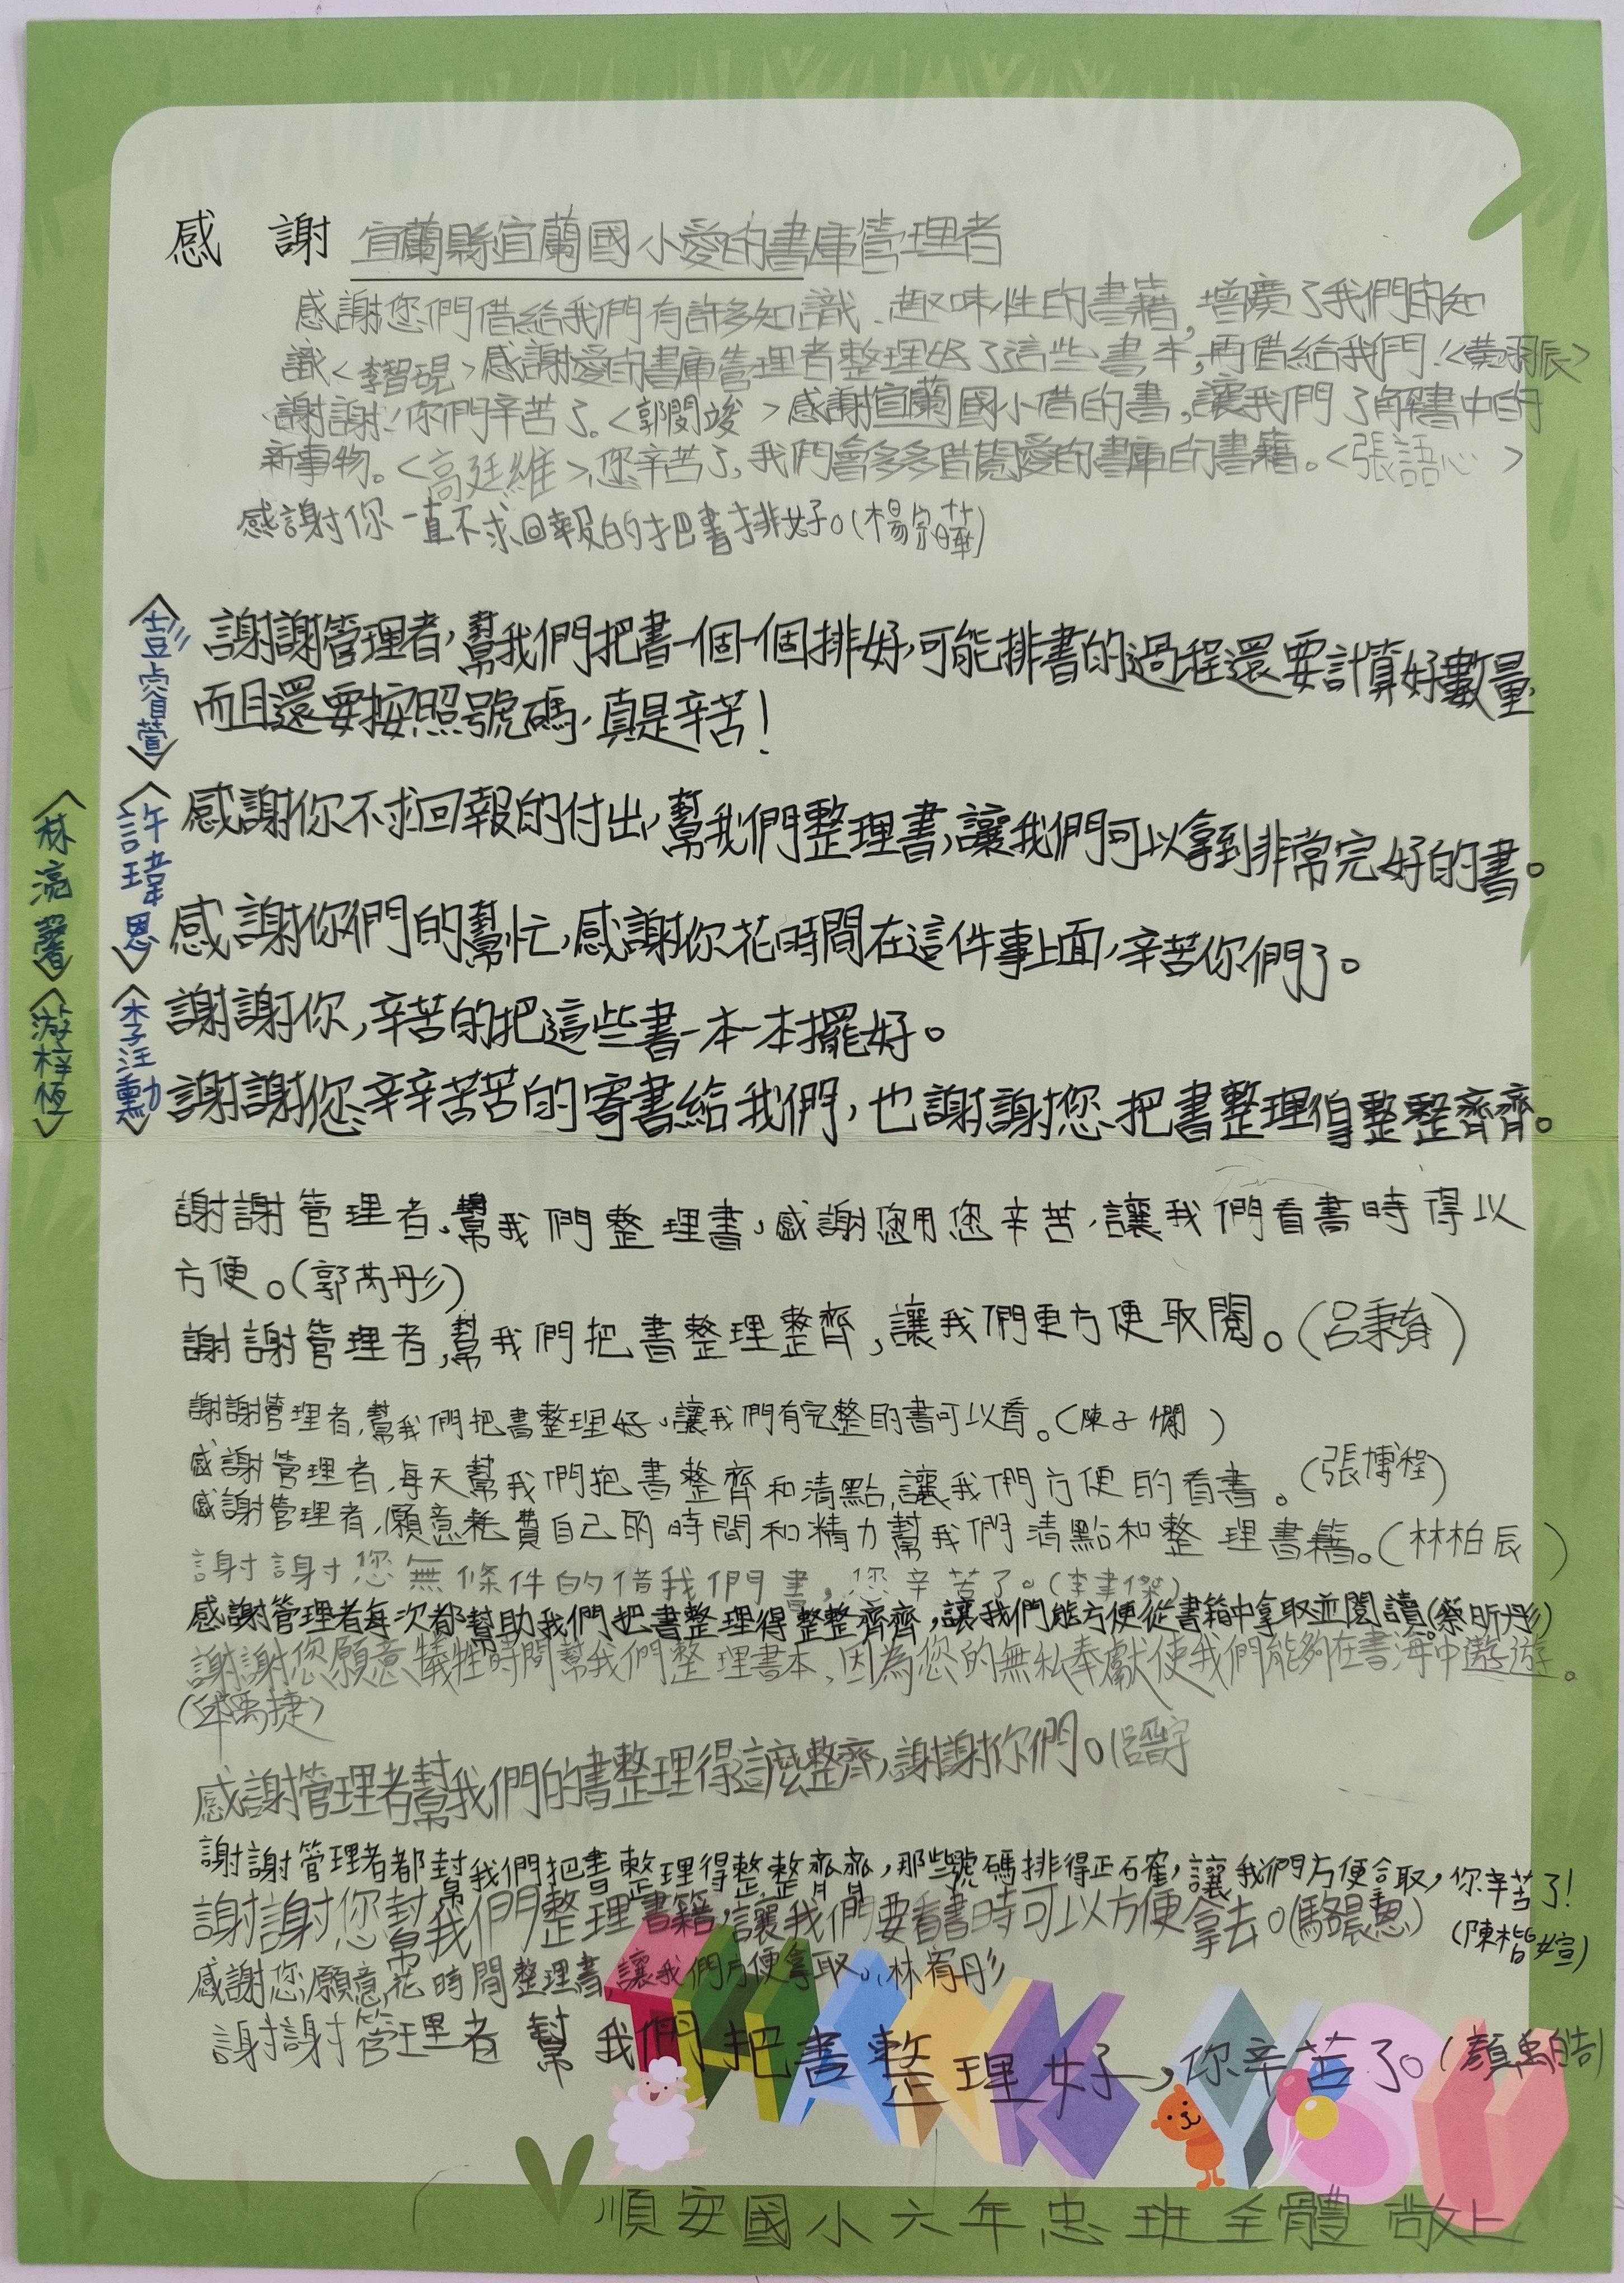 感 謝 宜蘭縣宜蘭國小愛的書庫管理者
感謝您們借給我們有許多知識、趣味性的書籍,增廣了我們的知
識<李智硯>感謝愛的書庫管理者整理好了這些書本,再借給我們!<黃羽辰>
謝謝!你們辛苦了。<郭閔竣>感謝宜蘭國小借的書,讓我們了解書中的
新事物。<高廷維>,您辛苦了,我們會多多借閱愛的書庫的書籍。<張語心>
感謝你一直不求回報的把書排好。(楊宗曄)
<彭睿萱>
謝謝管理者,幫我們把書一個一個排好,可能排書的過程還要計算好數量,
而且還要按照號碼,真是辛苦!
<許瑋恩>
<林湳馨>
感謝你不求回報的付出,幫我們整理書,讓我們可以拿到非常完好的書。
感謝你們的幫忙,感謝你花時間在這件事上面,辛苦你們了。
<李汪勳>
<游梓恆>
謝謝你,辛苦的把這些書一本一本擺好。
謝謝您辛辛苦苦的寄書給我們,也謝謝您把書整理得整整齊齊。
謝謝管理者,幫我們整理書,感謝您用您辛苦,讓我們看書時得以
方便。(郭芮彤)
謝謝管理者,幫我們把書整理整齊,讓我們更方便取閱。(呂秉育)
謝謝管理者,幫我們把書整理好,讓我們有完整的書可以看。(陳子嫻)
感謝管理者,每天幫我們把書整齊和清點,讓我們方便的看書。(張博程)
感謝管理者,願意耗費自己的時間和精力幫我們清點和整理書籍。(林柏辰)
謝謝您無條件的借我們書,您辛苦了。(李聿傑)
感謝管理者每次都幫助我們把書整理得整整齊齊,讓我們能方便從書箱中拿取並閱讀。(蔡昕彤)
謝謝您願意犧牲時間幫我們整理書本,因為您的無私奉獻使我們能夠在書海中遨遊。
(邱禹捷)
感謝管理者幫我們的書整理得這麼整齊,謝謝你們。
謝謝管理者都幫我們把書整理得整整齊齊,那些號碼排得正確,讓我們方便拿取,你辛苦了!
(陳楷媗)
謝謝您幫我們整理書籍,讓我們要看書時可以方便拿去。(駱晨恩)
感謝您願意花時間整理書,讓我們方便拿取。(林宥彤)
謝謝管理者幫我們把書整理好,你辛苦了。(顏禹皓)
THANK YOU
順安國小六年忠班全體 敬上